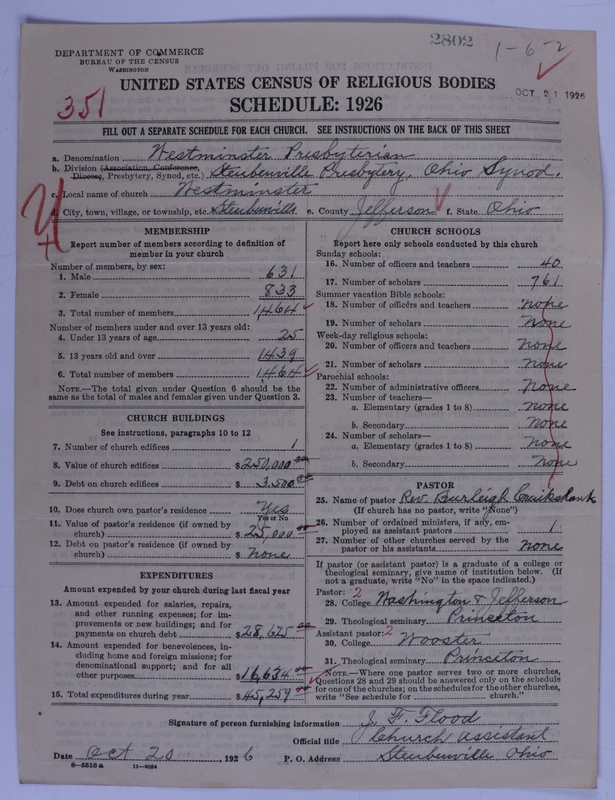 2802
1-6-2
DEPARTMENT OF COMMERCE
BUREAU OF THE CENSUS
WASHINGTON
UNITED STATES CENSUS OF RELIGIOUS BODIES
OCT 21 1926
351
SCHEDULE: 1926
FILL OUT A SEPARATE SCHEDULE FOR EACH CHURCH. SEE INSTRUCTIONS ON THE BACK OF THIS SHEET
a. Denomination Westminster Presbyterian
b. Division (Association, Conference, Diocese, Presbytery, Synod, etc.) Steubenville Presbytery, Ohio Synod.
c. Local name of church Westminster
d. City, town, village, or township, etc. Steubenville e. County Jefferson f. State Ohio
MEMBERSHIP
Report number of members according to definition of
member in your church
Number of members, by sex:
1. Male 631
2. Female 833
3. Total number of members 1464
Number of members under and over 13 years old:
4. Under 13 years of age 25
5. 13 years old and over 1439
6. Total number of members 1464
NOTE.—The total given under Question 6 should be
same as the total of males and females given under Question 3.
CHURCH BUILDINGS
See instructions, paragraphs 10 to 12
7. Number of church edifices 1
8. Value of church edifices $250,000.00
9. Debt on church edifices $3,500.00
10. Does church own pastor's residence? Yes
Yes or No
11. Value of pastor's residence (if owned by
church) $25,000.00
12. Debt on pastor's residence (if owned by
church) $none
EXPENDITURES
Amount expended by your church during last fiscal year
13. Amount expended for salaries, repairs,
and other running expenses; for im-
provements or new building; and for
payments on church debt $28,625.00
14. Amount expended for benevolences, in-
cluding home and foreign missions; for
denominational support; and for all
other purposes $16,634.00
15. Total expenditures during year $45,259.00
CHURCH SCHOOLS
Report here only schools conducted by this church
Sunday schools:
16. Number of officers and teachers 40
17. Number of scholars 761
Summer vacation Bible schools:
18. Number of officers and teachers none
19. Number of scholars None
Week-day religious schools:
20. Number of officers and teachers None
21. Number of scholars None
Parochial schools:
22. Number of administrative officers None
23. Number of teachers—
a. Elementary (grades 1 to 8) none
b. Secondary none
24. Number of scholars—
a. Elementary (grades 1 to 8) None
b. Secondary None
PASTOR
25. Name of pastor Rev. Burleigh Cruikshank
(If church has no pastor, write "None")
26. Number of ordained ministers, if any, em-
ployed as assistant pastors 1
27. Number of other churches served by the
pastor or his assistants none
If pastor (or assistant pastor) is a graduate of a college or
theological seminary, give name of institution below. (If
not a graduate, write "No" in the space indicated.)
Pastor: 2
28. College Washington & Jefferson
29. Theological seminary Princeton
Assistant pastor: 2
30. College Wooster
31. Theological seminary Princeton
NOTE.—Where one pastor serves two or more churches,
Questions 28 and 29 should be answered only on the schedule
for one of the churches; on the schedules for the other churches,
write "See schedule for church."
Signature of person furnishing information J. F. Flood
Official title Church Assistant
Date Oct 20 1926 P. O. Address Steubenville Ohio
8-5518a 11-9054